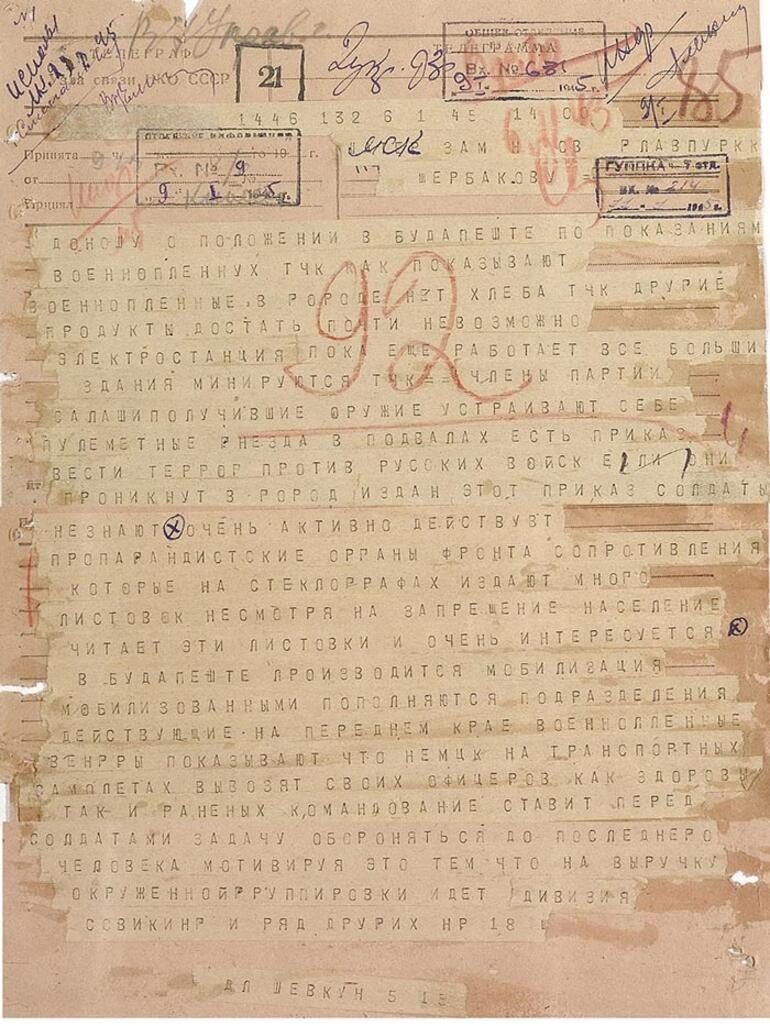 ТЕЛЕГРАФ
ТЕЛЕГРАММА
связи НКО СССР
21
Вх. №
1945 г.
85
1446 132 6 1 45 14 06
Принята
ч.
г.
от
Принял
Вх. № 9
9 1 1945 г.
МСК ЗАМ
РЛАВПУРКК
ЩЕРБАКОВУ =
7 ОТД.
ВХ. № 214
1945 г.
ДОНОШУ О ПОЛОЖЕНИИ В БУДАПЕШТЕ ПО ПОКАЗАНИЯМ
ВОЕННОПЛЕННУХ ТЧК КАК ПОКАЗЫВАЮТ
ВОЕННОПЛЕННЫЕ В РОРОДЕ НЕТ ХЛЕБА ТЧК ДРУРИЕ
ПРОДУКТЫ ДОСТАТЬ ПОЧТИ НЕВОЗМОЖНО
92
ЭЛЕКТРОСТАНЦИЯ ПОКА ЕЩЕ РАБОТАЕТ ВСЕ БОЛЬШИ
ЗДАНИЯ МИНИРУЮТСЯ ТЧК == ЧЛЕНЫ ПАРТИИ
САЛАШИПОЛУЧИВШИЕ ОРУЖИЕ УСТРАИВАЮТ СЕБЕ
ПУЛЕМЕТНЫЕ РНЕЗДА В ПОДВАЛАХ ЕСТЬ ПРИКАЗ
ВЕСТИ ТЕРРОР ПРОТИВ РУССКИХ ВОЙСК ЕСЛИ ОНИ
ПРОНИКНУТ В РОРОД ИЗДАН ЭТОТ ПРИКАЗ СОЛДАТЫ
НЕЗНАЮТ ОЧЕНЬ АКТИВНО ДЕЙСТВУВТ
ПРОПАРАНДИСТСКИЕ ОРГАНЫ ФРОНТА СОПРОТИВЛЕНИЯ
КОТОРЫЕ НА СТЕКЛОРРАФАХ ИЗДАЮТ МНОГО
ЛИСТОВОК НЕСМОТРЯ НА ЗАПРЕЩЕНИЕ НАСЕЛЕНИЕ
ЧИТАЕТ ЭТИ ЛИСТОВКИ И ОЧЕНЬ ИНТЕРЕСУЕТСЯ
В БУДАПЕШТЕ ПРОИЗВОДИТСЯ МОБИЛИЗАЦИЯ
МОБИЛИЗОВАННЫМИ ПОПОЛНЯЮТСЯ ПОДРАЗДЕЛЕНИЯ
ДЕЙСТВУЮЩИЕ НА ПЕРЕДНЕМ КРАЕ ВОЕННОЛЛЕННЫЕ
ВЕНРРЫ ПОКАЗЫВАЮТ ЧТО НЕМЦК НА ТРАНСПОРТНЫХ
САМОЛЕТАХ ВЫВОЗЯТ СВОИХ ОФИЦЕРОВ КАК ЗДОРОВЫ
ТАК И РАНЕНЫХ КОМАНДОВАНИЕ СТАВИТ ПЕРЕД
СОЛДАТАМИ ЗАДАЧУ ОБОРОНЯТЬСЯ ДО ПОСЛЕДНЕРО
ЧЕЛОВЕКА МОТИВИРУЯ ЭТО ТЕМ ЧТО НА ВЫРУЧКУ
ОКРУЖЕННОЙРРУППИРОВКИ ИДЕТ ДИВИЗИЯ
ССВИКИНР И РЯД ДРУРИХ НР 18
ДЛ ШЕВКУН 5 15